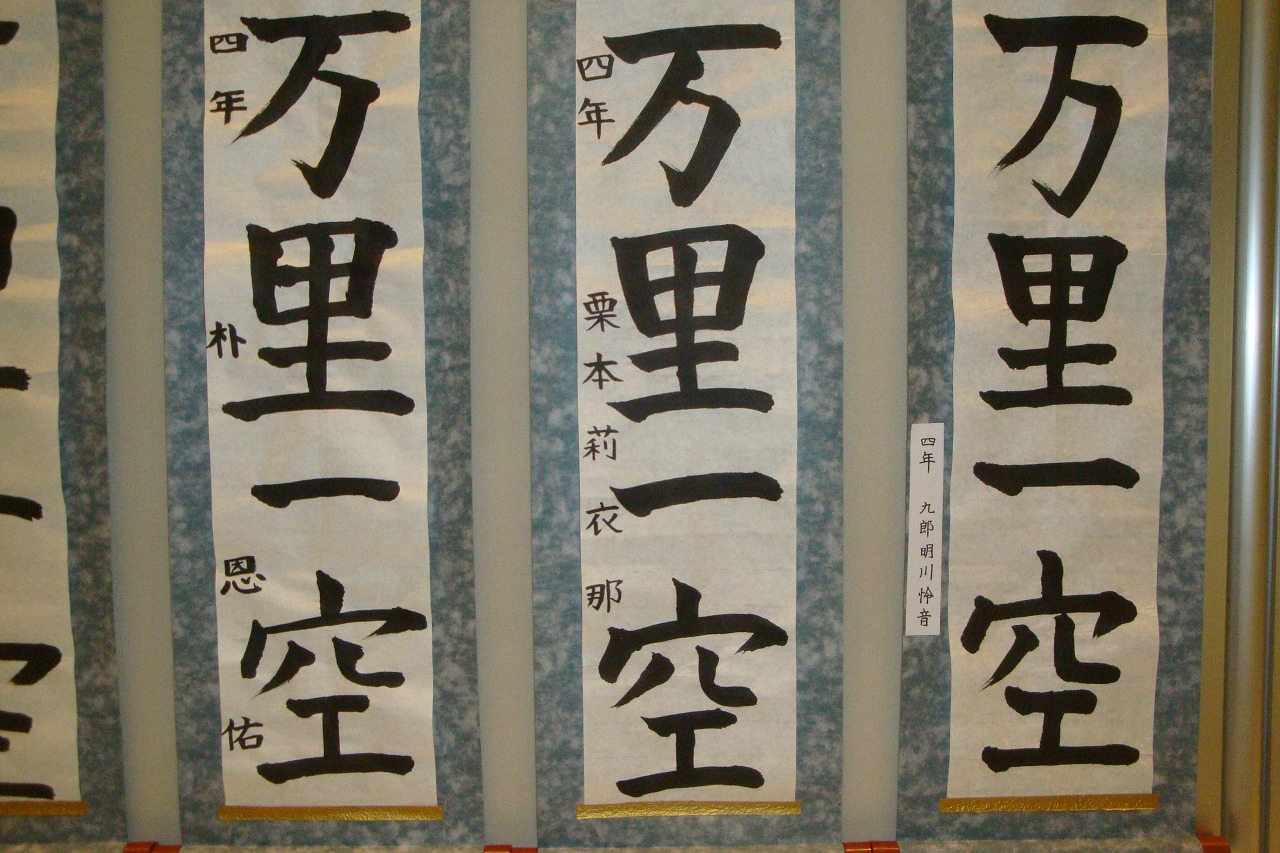 万里一空
四年 九郎明川怜音
万里一空
四年 栗本莉衣那
万里一空
四年 朴恩佑